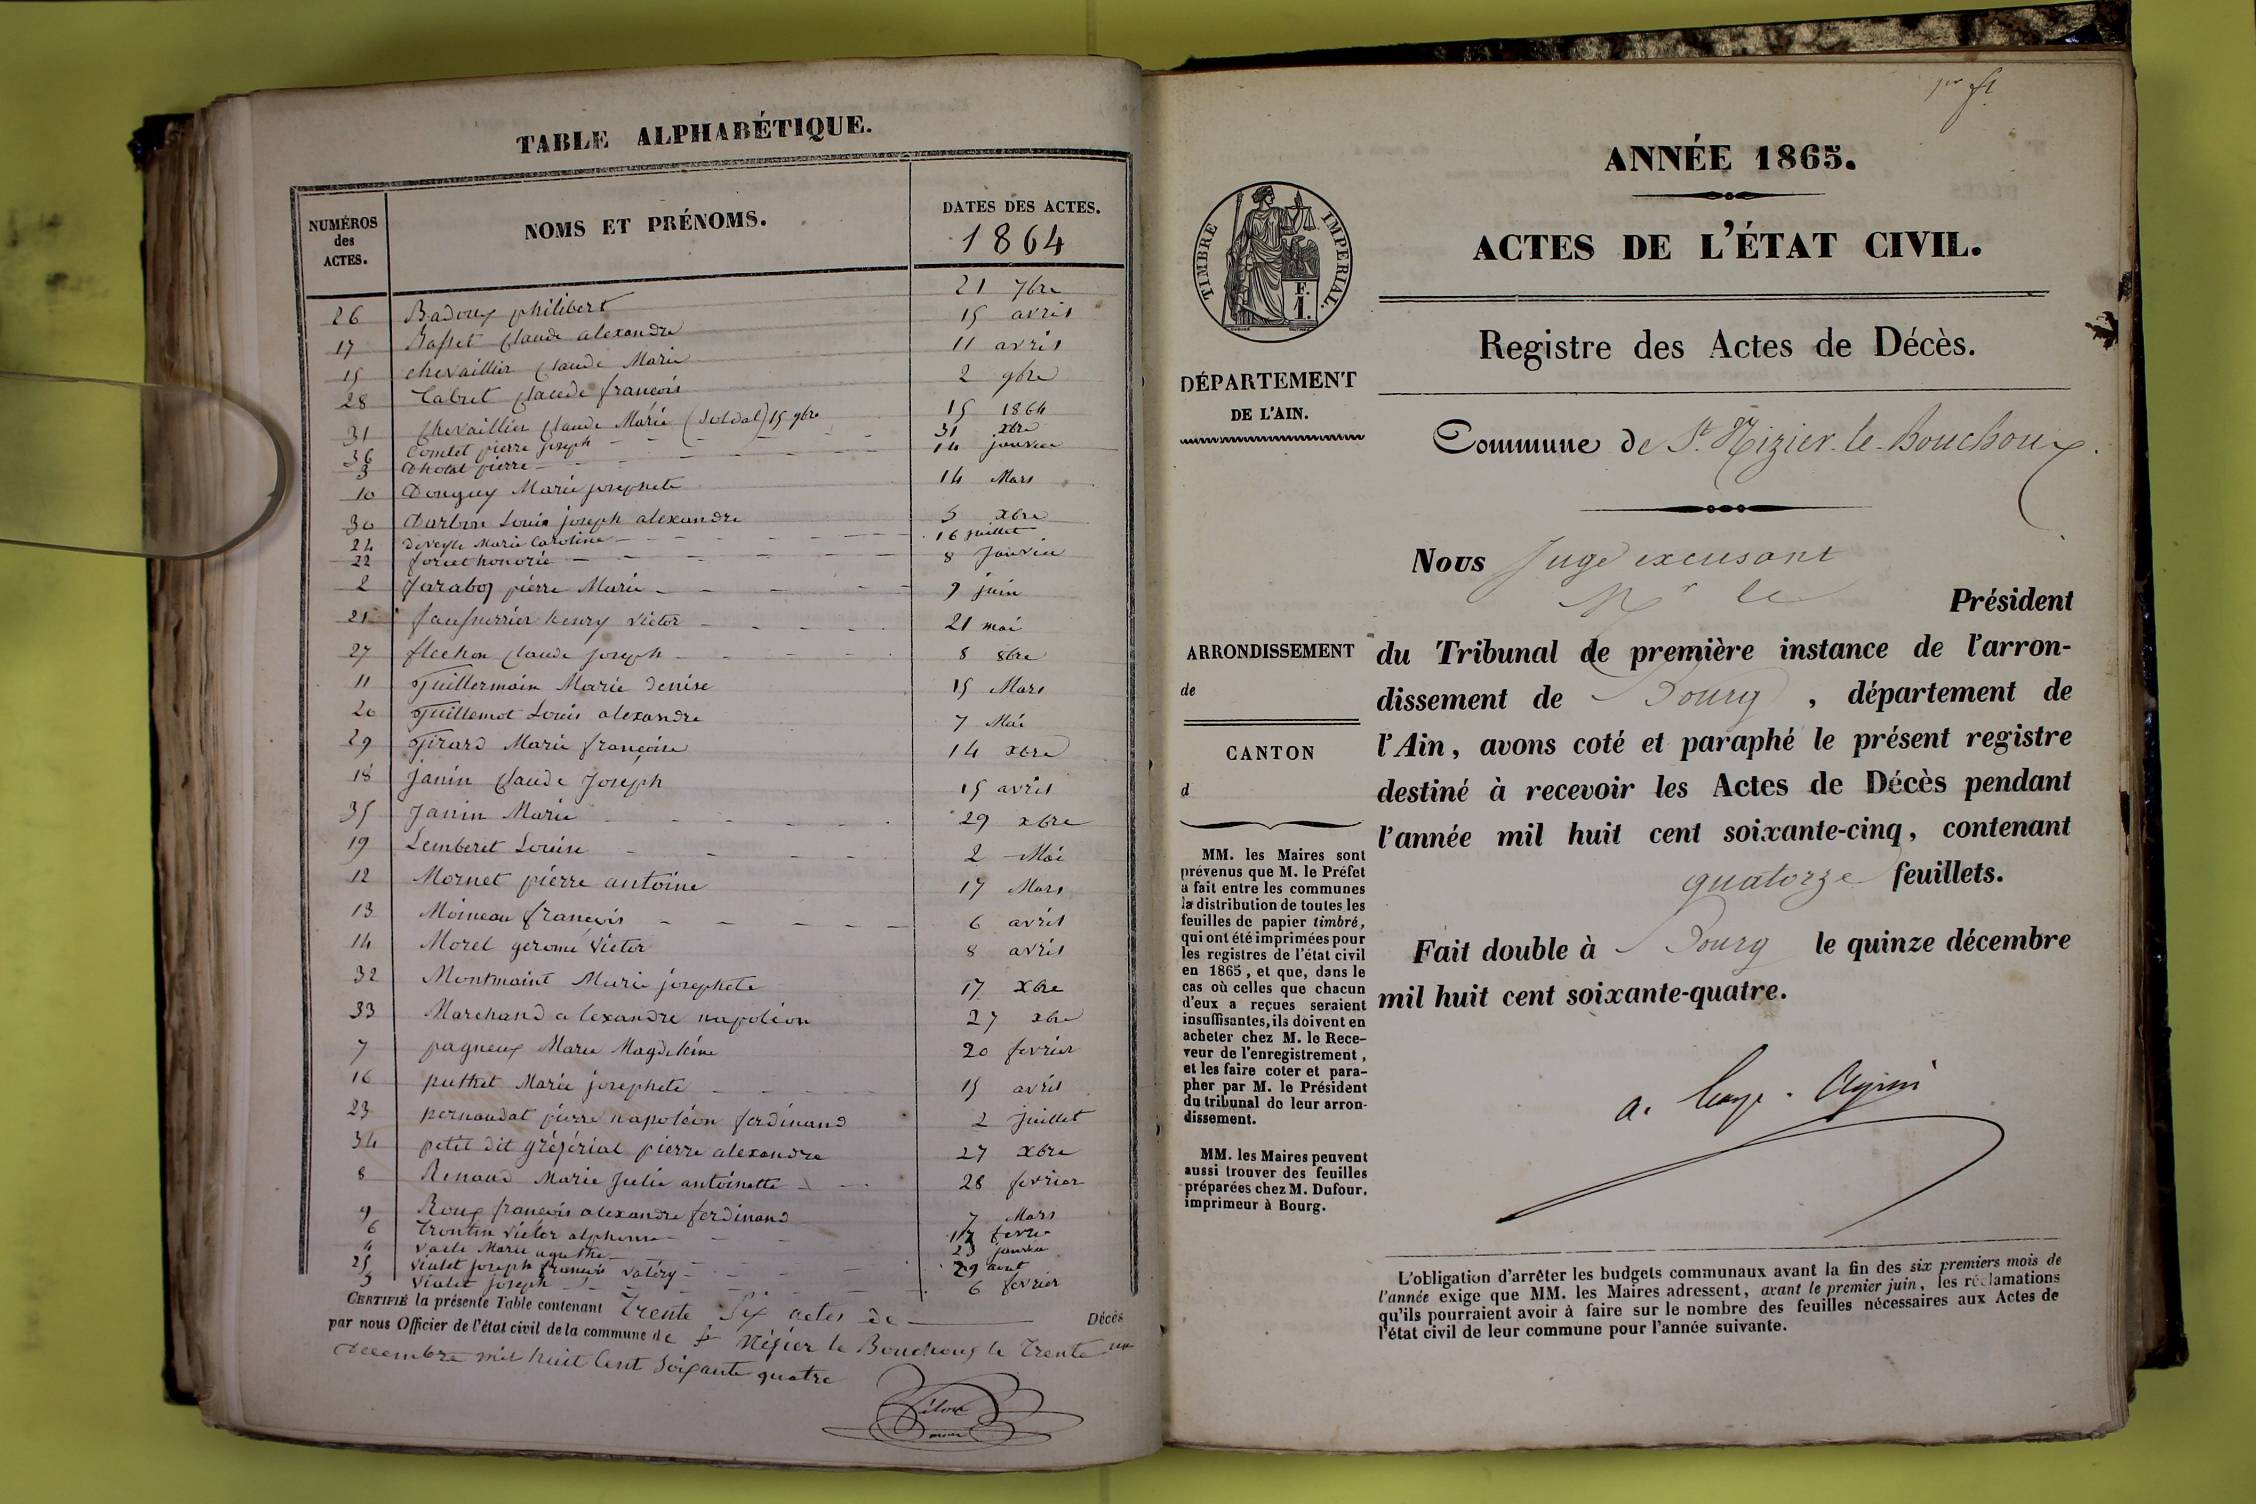 TABLE ALPHABÉTIQUE.
NUMÉROS
des
ACTES.
NOMS ET PRÉNOMS.
DATES DES ACTES.
1864
26 Badoux philibert 21 7bre
17 Basset Claude alexandre 15 avril
15 chevaillier Claude Marie 11 avril
28 Cabut Claude françois 2 9bre
31 Chevaillier Claude Marie (Soldat) 15 9bre 15 1864
36 Comtet pierre joseph 31 xbre
3 Cholat pierre 14 janvier
10 Donguy Marie josephete 14 Mars
30 Darbon Louis joseph alexandre 5 xbre
24 deveyle Marie Caroline 16 juillet
22 foret honorée 8 Janvier
2 Jaraboz pierre Marie 9 juin
21 henry victor 21 mai
27 flechon Claude joseph 8 8bre
11 Guillermain Marie denise 15 Mars
20 Guillemot Louis alexandre 7 Mai
29 Girard Marie françoise 14 xbre
18 janin Claude Joseph 15 avril
35 Janin Marie 29 xbre
19 Lemberet Louise 2 Mai
12 Mornet pierre antoine 17 Mars
13 Moineau françois 6 avril
14 Morel gerome victor 8 avril
32 Montmaint Marie josephete 17 xbre
33 Marchand alexandre napoléon 27 xbre
7 pagneux Marie Magdeleine 20 fevrier
16 puthet Marie josephete 15 avril
23 pernaudat pierre napoléon ferdinand 2 juillet
34 petit dit pierre alexandre 27 xbre
8 Renaud Marie Julie antoinette 28 fevrier
9 Roux françois alexandre ferdinand 7 Mars
6 Trontin victor alphonse 17 fevrier
4 Marie agathe 23 janvier
25 vialet joseph françois valéry 29 aout
5 vialet joseph 6 février
CERTIFIÉ la présente Table contenant Trente Six actes de Décès
par nous Officier de l'état civil de la commune de St Nizier le Bouchoux le Trente un
decembre mil huit Cent Soixante quatre
1er ft
ANNÉE 1865.
ACTES DE L'ÉTAT CIVIL.
TIMBRE IMPERIAL.
F.
1.
Registre des Actes de Décès.
DÉPARTEMENT
DE L'AIN.
Commune de St. Nizier-le-Bouchoux.
Nous Juge excusant
Mr le Président
ARRONDISSEMENT
de
CANTON
d
du Tribunal de première instance de l'arron-
dissement de Bourg, département de
l'Ain, avons coté et paraphé le présent registre
destiné à recevoir les Actes de Décès pendant
l'année mil huit cent soixante-cinq, contenant
quatorze feuillets.
Fait double à Bourg le quinze décembre
mil huit cent soixante-quatre.
MM. les Maires sont
prévenus que M. le Préfet
a fait entre les communes
la distribution de toutes les
feuilles de papier timbré,
qui ont été imprimées pour
les registres de l'état civil
en 1865, et que, dans le
cas où celles que chacun
d'eux a reçues seraient
insuffisantes, ils doivent en
acheter chez M. le Rece-
veur de l'enregistrement,
et les faire coter et para-
pher par M. le Président
du tribunal de leur arron-
dissement.
MM. les Maires peuvent
aussi trouver des feuilles
préparées chez M. Dufour,
imprimeur à Bourg.
L'obligation d'arrêter les budgets communaux avant la fin des six premiers mois de
l'année exige que MM. les Maires adressent, avant le premier juin, les réclamations
qu'ils pourraient avoir à faire sur le nombre des feuilles nécessaires aux Actes de
l'état civil de leur commune pour l'année suivante.